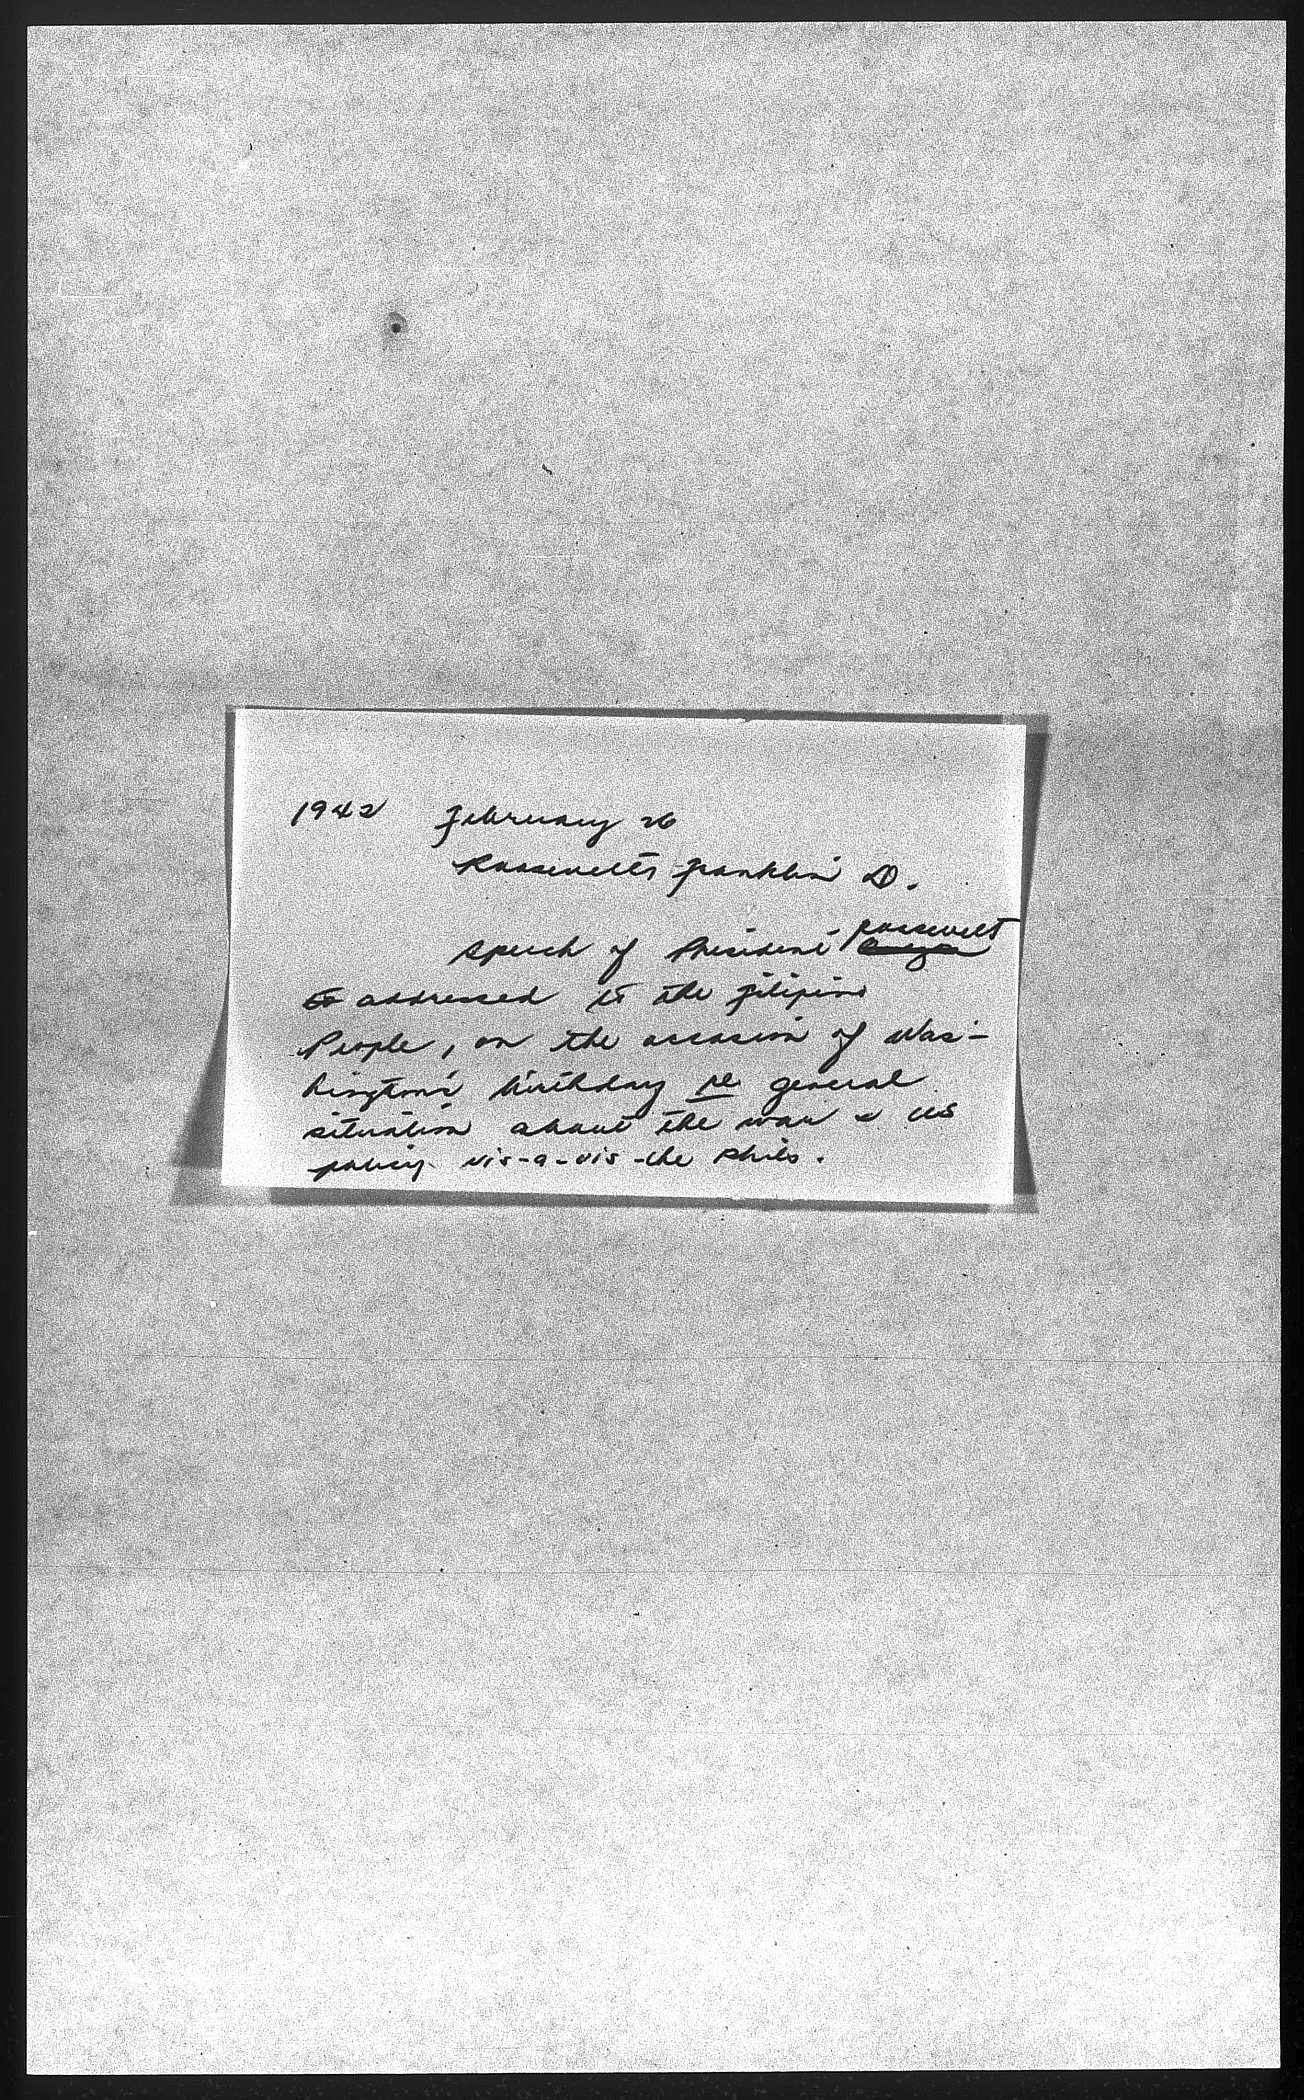 1942 February 26
Roosevelt, Franklin D.
Roosevelt
Speech of President
to addressed to the Filipino
People, on the occasion of Was-
hington's birthday re general
situation about the war & US
policy vis-a-vis the Phils.